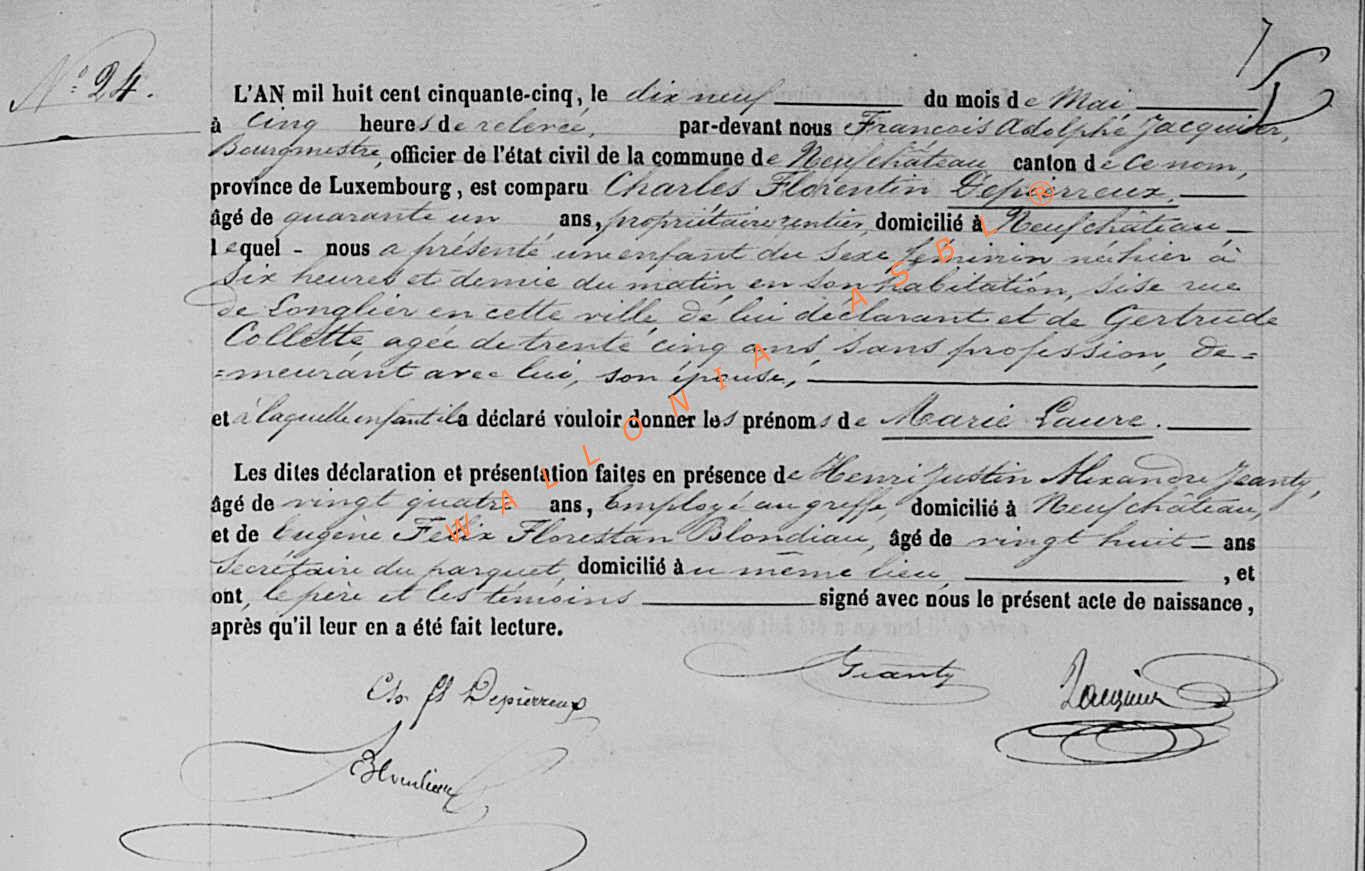 N° 24.
L'AN mil huit cent cinquante-cinq, le dix neuf du mois de Mai
à Cinq heures de relevée, par-devant nous François Adolphe Jacquier,
Bourgmestre, officier de l'état civil de la commune de Neufchâteau canton de Ce nom,
province de Luxembourg, est comparu Charles Florentin Depierreux,
âgé de quarante un ans, propriétaire rentier, domicilié à Neufchâteau
lequel - nous a présenté un enfant du sexe féminin né hier à
Six heures et demie du matin en son habitation, sise rue
de Longlier en cette ville de lui déclarant et de Gertrude
Collette, agée de trente cinq ans, sans profession, de=
=meurant avec lui, son épouse,
et à laquelle enfant il a déclaré vouloir donner les prénoms de Marie Laure.
Les dites déclaration et présentation faites en présence de Henri Justin Alexandre Jeanty,
âgé de vingt quatre ans, Employé au greffe, domicilié à Neufchâteau,
et de Eugène Félix Florestan Blondiau, âgé de vingt huit ans
Secrétaire du parquet, domicilié au même lieu, , et
ont, le père et les témoins signé avec nous le présent acte de naissance,
après qu'il leur en a été fait lecture.
Jeanty
Jacquier
Ch Fl Depierreux
Blondiau
WALLONIA ASBL ®